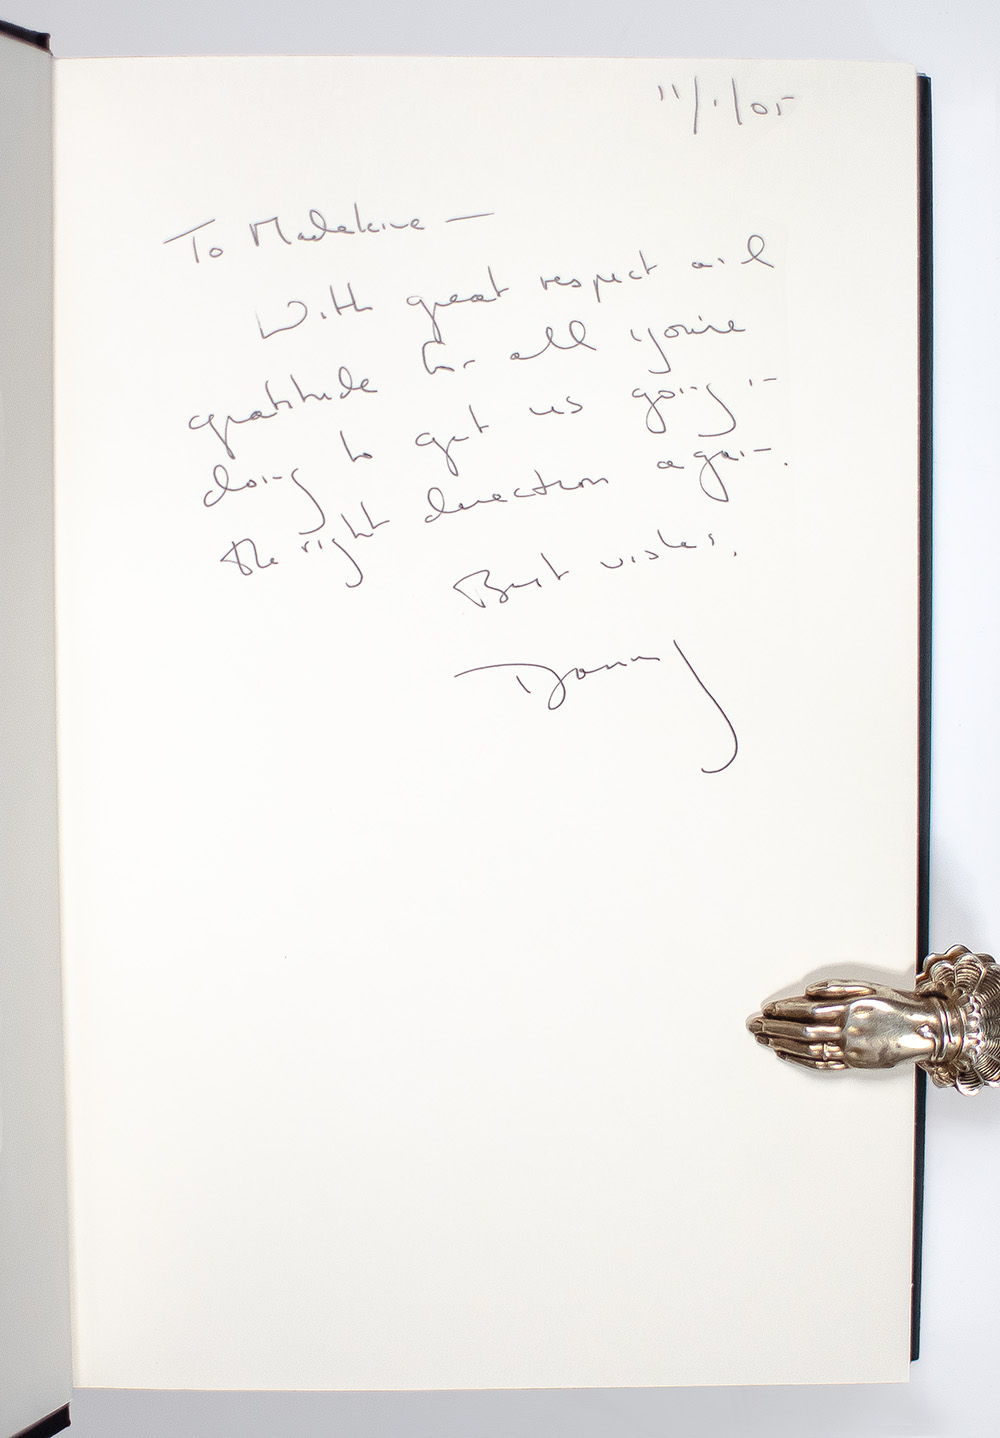 11/1/05
To Madeleine —
With great respect and
gratitude for all you're
doing to get us going in
the right direction again.
Best wishes,
Danny